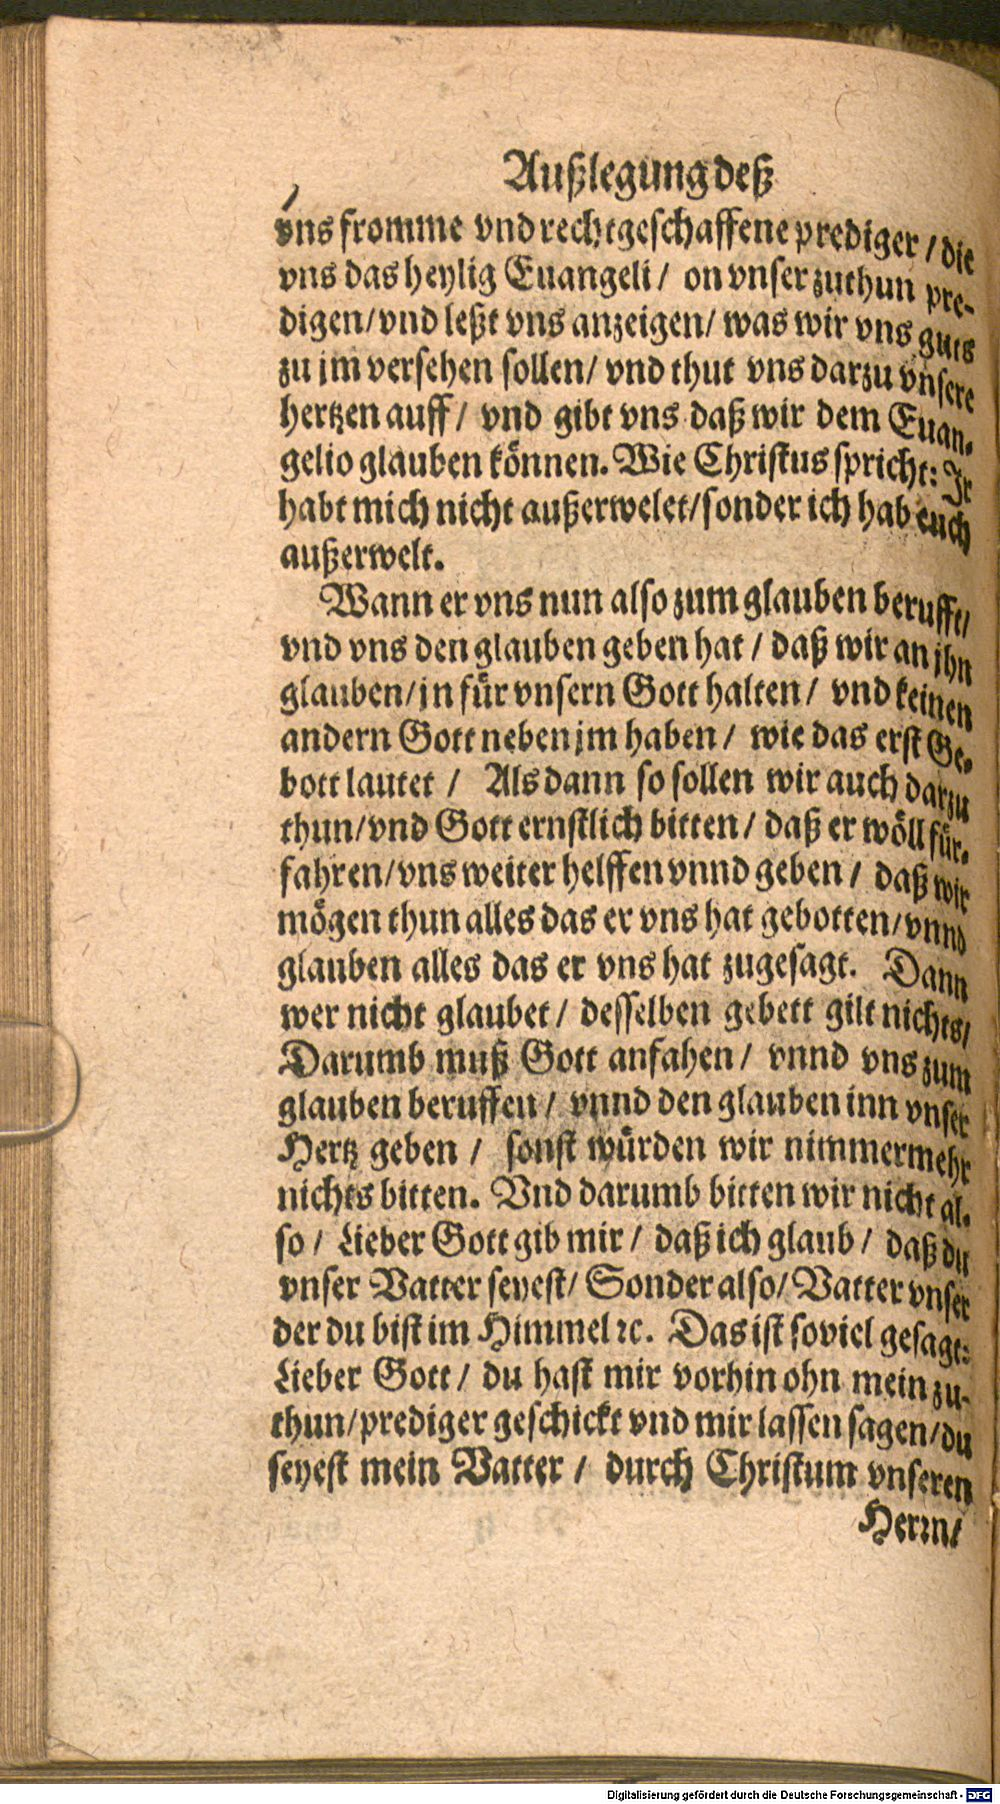 Außlegung deß
vns fromme vnd rechtgeschaffene prediger / die
vns das heylig Euangeli / on vnser zuthun pre-
digen / vnd leßt vns anzeigen / was wir vns guts
zu jm versehen sollen / vnd thut vns darzu vnsere
hertzen auff / vnd gibt vns daß wir dem Euan-
gelio glauben können. Wie Christus spricht: Jr
habt mich nicht außerwelet / sonder ich hab euch
außerwelt.
Wann er vns nun also zum glauben berufft /
vnd vns den glauben geben hat / daß wir an jhn
glauben / jn für vnsern Gott halten / vnd keinen
andern Gott neben jm haben / wie das erst Ge-
bott lautet / Als dann so sollen wir auch darzu
thun / vnd Gott ernstlich bitten / daß er wöll für-
fahren / vns weiter helffen vnnd geben / daß wir
mögen thun alles das er vns hat gebotten / vnnd
glauben alles das er vns hat zugesagt. Dann
wer nicht glaubet / desselben gebett gilt nichts /
Darumb muß Gott anfahen / vnnd vns zum
glauben beruffen / vnnd den glauben inn vnser
Hertz geben / sonst würden wir nimmermehr
nichts bitten. Vnd darumb bitten wir nicht al-
so / Lieber Gott gib mir / daß ich glaub / daß du
vnser Vatter seyest / Sonder also / Vatter vnser
der du bist im Himmel ꝛc. Das ist soviel gesagt:
Lieber Gott / du hast mir vorhin ohn mein zu-
thun / prediger geschickt vnd mir lassen sagen / du
seyest mein Vatter / durch Christum vnseren
Herrn /
Digitalisierung gefördert durch die Deutsche Forschungsgemeinschaft - DFG